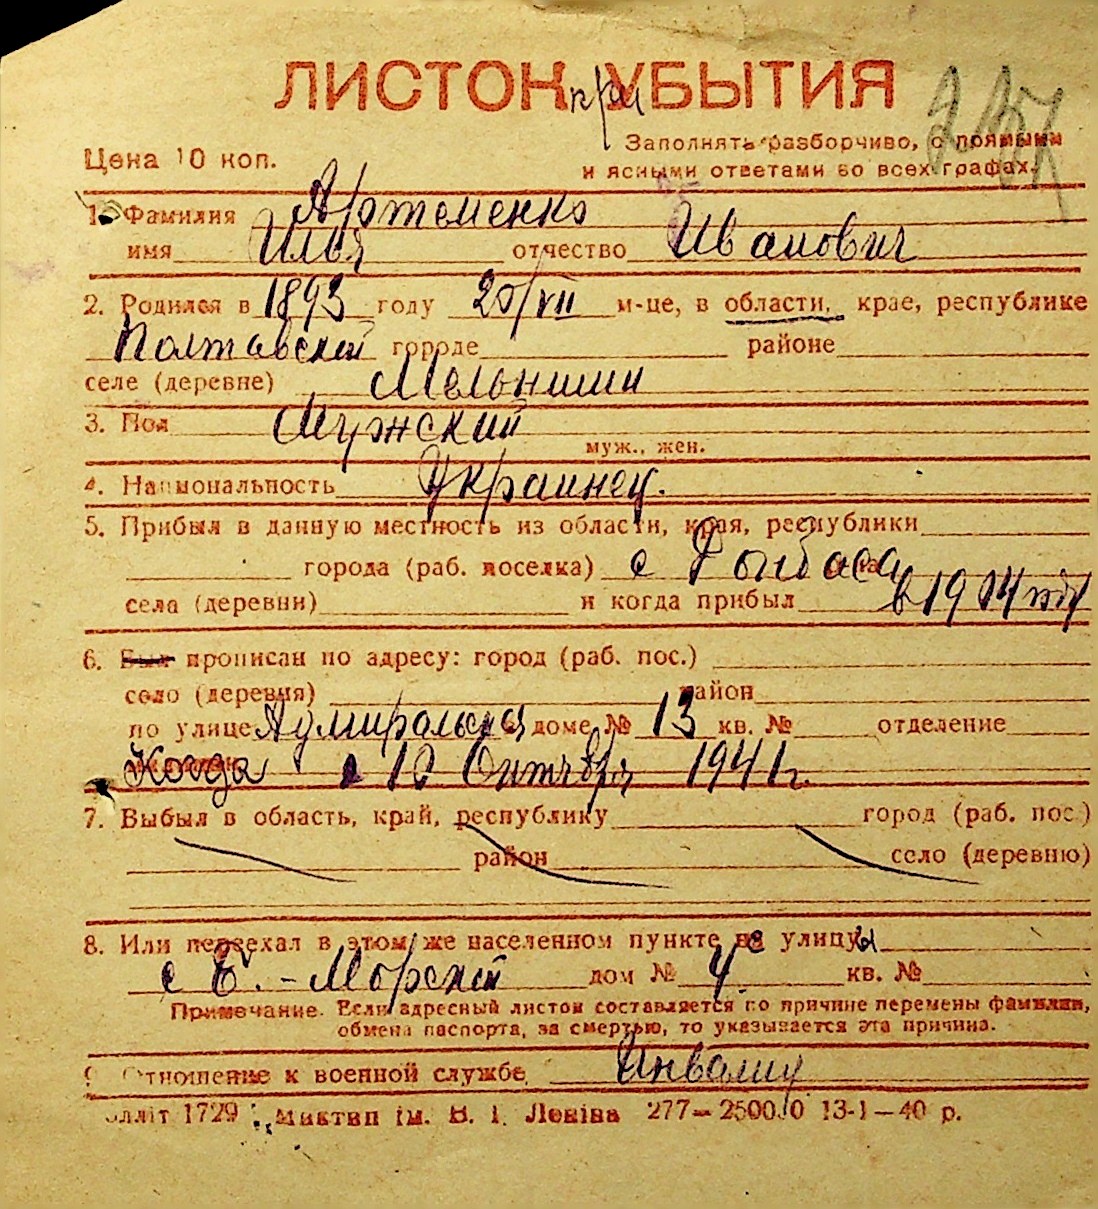 ЛИСТОК при УБЫТИЯ
Цена 10 коп.
Заполнять разборчиво, с прямыми
и ясными ответами во всех графах.
1. Фамилия Артеменко
имя Илья отчество Иванович
2. Родился в 1893 году 20/VII м-це, в области, крае, республике
Полтавской городе районе
селе (деревне) Мельники
3. Пол Мужский
муж., жен.
4. Национальность Украинец.
5. Прибыл в данную местность из области, края, республики
города (раб. поселка) с Донбаса
села (деревни) и когда прибыл в 1914 году
6. Был прописан по адресу: город (раб. пос.)
село (деревня) район
по улице Адмиральская доме № 13 кв. № отделение
Когда с 10 Октября 1941 г.
7. Выбыл в область, край, республику город (раб. пос.)
район село (деревню)
8. Или переехал в этом же населенном пункте с улицы
с Б.-Морской дом № 4 кв. №
Примечание. Если адресный листок составляется по причине перемены фамилии,
обмена паспорта, за смертью, то указывается эта причина.
9. Отношение к военной службе Инвалид
1729 ім. В. І. Леніна 277— 13-1—40 р.